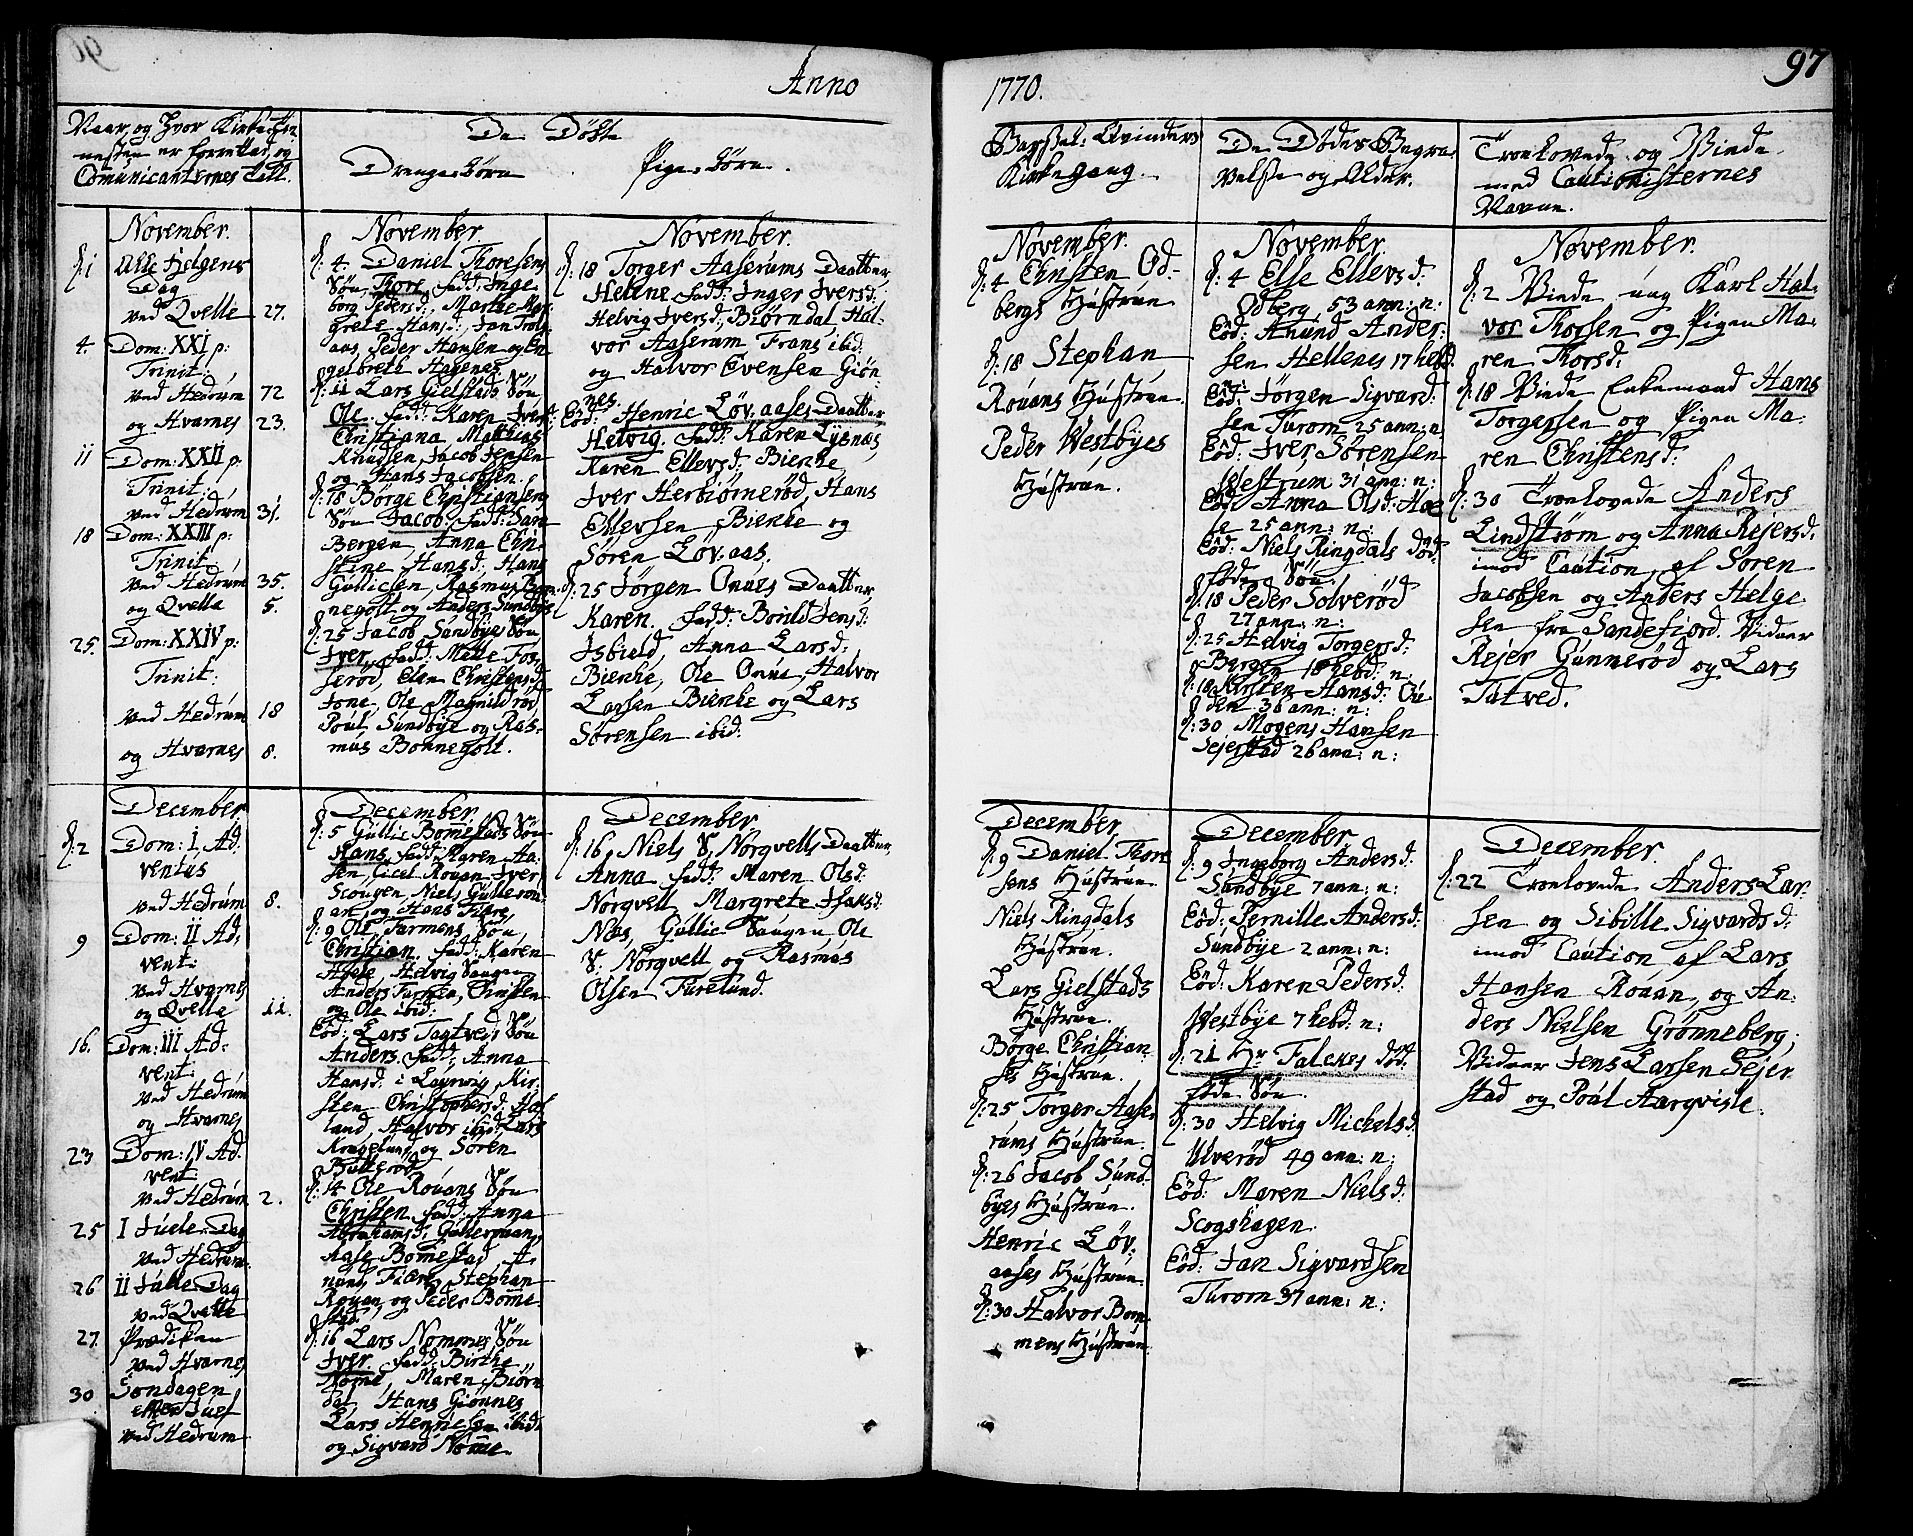 Anno
1770.
97
Naar og Hvor Kirke Tie-
nesten er forrettad, og
Comunicanternes Tall.
De Døbte
Drenge-børn
Pige-børn.
Barsel-Qvinders
Kirkegang.
De Dødes Begra-
velse og Alder.
Troelovede og Viede
med Cautionisternes
Navne.
November.
d: 1 Alle Helgens
Dag
ved Qvelle 27.
4. Dom: XXI p:
Trinit:
ved Hedrum 72
og Hvarnes 23.
11 Dom: XXII p:
Trinit:
ved Hedrum 31.
18 Dom: XXIII p:
Trinit:
ved Hedrum 35.
og Qvelle 5.
25. Dom: XXIV p:
Trinit:
ved Hedrum 18
og Hvarnes 8.
November
d: 4. Daniel Thoresens
Søn, Thore, fadd: Inge
borg Pedersd:, Marthe Mar
grete Hansd:, Jan Trols
aas, Peder Hansen og En
gelbreth Hagenes.
d: 11 Lars Gielstads Søn
Ole. fadd: Karen Ivers:
Christiana, Mathias
Knudsen, Jacob Jensen
og Hans Jacobsen.
d: 18 Børge Christiansens
Søn Jacob, fadd: Sara
Bergen, Anna Chri-
stine Hansd: Hans
Gullicsen, Rasmus Bon-
negolt og Anders Sundbye
d: 25 Jacob Sundbyes Søn
Iver, fadd: Mette Fos-
serød, Elen Christensd:
Tone, Ole Magnildrød
Poul, Sundbye og Ras-
mus Bonnegolt.
November.
d: 18 Torger Aaserums Daatter
Helene fadd: Inger Iversd:
Helvig Iversd: Biørndal, Hal-
vor Aaserum Frans ibid:
og Halvor Evensen Giøn-
nes.
Eod: Henric Løv-aases Daatter
Helvig. fadd: Karen Lysnæs,
Karen Ellevsd: Bienke,
Iver Herbiørnerød, Hans
Ellevsen Bienke og
Søren Løv-aas.
d: 25 Jørgen Onnes Daatter
Karen. fadd: Borild Jensd:
Isbield Anna Larsd:
Bienke, Ole Onne, Halvor
Larsen Bienke og Lars
Sørensen ibid:
November.
d: 4 Christen Od-
bergs Hustrue
d: 18 Stephan
Rouans Hustrue.
Peder Westbyes
Hustrue.
November
d: 4 Else Ellevsd:
Odberg, 53 ann: n:
Eod: Anund Ander-
sen Hellenes 17 hebd.
Eod: Jørgen Sigvard-
sen Turom 25 ann: n.
Eod: Iver Sørensen
Westrum 31 ann: n:
Eod: Anna Olsd: Hae
25 ann: n:
Eod: Niels Ringdals død-
føde Søn.
d: 18 Peder Solverød
27 ann: n:
d: 25 Helvig Torgersd:
Berge 18 hebd: n:
d: 18 Kirsten Hansd: Ou
den 36 ann: n:
d: 30 Mogens Hansen
Sejerstad 26 ann: n:
November.
d: 2 Viede ung Karl Hal-
vor Thorsen og Pigen Ma-
ren Thorsd:
d: 18 Viede Enkemand Hans
Torgersen og Pigen Ma-
ren Christensd:
d: 30 Troelovede Anders
Lindstrøm og Anna Rejersd:
imod Caution af Søren
Jacobsen og Anders Helge-
sen fra Sandefiord. Vidner
Rejer Gunnerød og Lars
Tatved.
December.
d: 2 Dom: I. Ad-
ventus
ved Hedrum 8.
9 Dom: II Ad-
vent:
ved Hvarnes
og Qvelle 11.
16. Dom: III Ad-
vent:
ved Hedrum
og Hvarnes
23 Dom: IV Ad-
vent:
ved Hedrum 2.
25 I Juele-Dag
ved Hedrum
26 II Juele-Dag
ved Qvelle
27. Prædiken
ved Hvarnes
30 Søndagen
efter Juel
ved Hedrum
December.
d: 5 Gullic Bomestads Søn
Hans, fadd: Karen Aa-
sen, Cicel Rouan Iver
Scougen, Niels Gulleron
an, og Hans Fiære
d: 9 Ole Farmens Søn,
Christian. fadd: Karen
Haslé, Helvig Saugen
Anders Farmen, Christen
og Ole ibid:
Eod: Lars Tagtveds Søn
Anders, fadd: Anna
Hansd: i Laurwig, Kir-
sten Christophersd: Hol
land, Halvor ibid: Lars
Kragelund, og Søren
Butterød.
d: 14 Ole Rouans Søn
Christen. fadd: Anna
Abrahamsd: Gullerouan,
Aase Bomestad, A-
nund Fiære, Stephan
Rouan, og Peder Bome-
stad.
d: 16 Lars Nommes Søn
Iver. fadd: Birthe
Nome, Maren Biørn
dal, Hans Giønnes
Lars Henricsen ibid:
og Sigvard Nome.
December
d: 16, Niels S: Norgvells Daatter,
Anna fadd: Maren Olsd:
Norgvell Margrete Isaksd:
Næs, Gullic Saugen, Ole
S: Norgvell og Rasmus
Olsen Turelund.
December
d: 9 Daniel Thore
sens Hustrue
Niels Ringdals
Hustrue.
Lars Gielstads
Hustrue.
Børge Christian-
ses Hustrue.
d: 25 Torger Aase-
rums Hustrue.
d: 26 Jacob Sund-
byes Hustrue.
Henric Løv-
aases Hustrue
d: 30 Halvor Bom
mens Hustrue.
December
d: 9 Ingeborg Andersd:
Sundbye 7 ann: n:
Eod: Pernille Andersd:
Sundbye 2 ann: n:
Eod: Karen Pedersd:
Westbye 7 hebd: n:
d: 21 Hr Falckes død-
føde Søn.
d: 30 Helvig Michelsd:
Ulverød 49 ann: n:
Eod: Maren Nielsd:
Scogshagen.
Eod: Jan Sigvardsen
Turom 37 ann: n:
December.
d: 22 Troelovede Anders Lar-
sen og Sibille Sigvardsd:
imod Caution af Lars
Hansen Rouan, og An-
ders Nielsen Grønneberg;
Vidner Jens Larsen Sejer-
stad og Poul Aarqvisle.